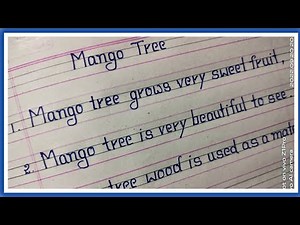 Mango Tree
1. Mango tree grows very sweet fruit.
2. Mango tree is very beautiful to see.
tree wood is used as a